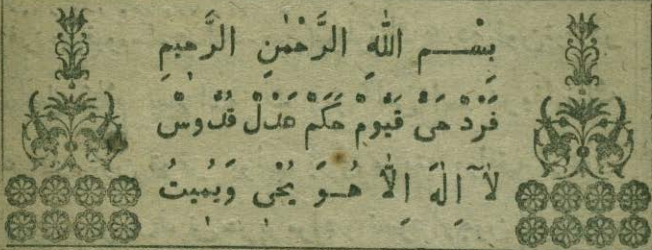 بِسْمِ اللهِ الرَّحْمٰنِ الرَّحِيمِ
فَرْدٌ حَىٌّ قَيُّومٌ حَكَمٌ عَدْلٌ قُدُّوسٌ
لَآ اِلٰهَ اِلَّا هُوَ يُحْيٖى وَيُمٖيتُ